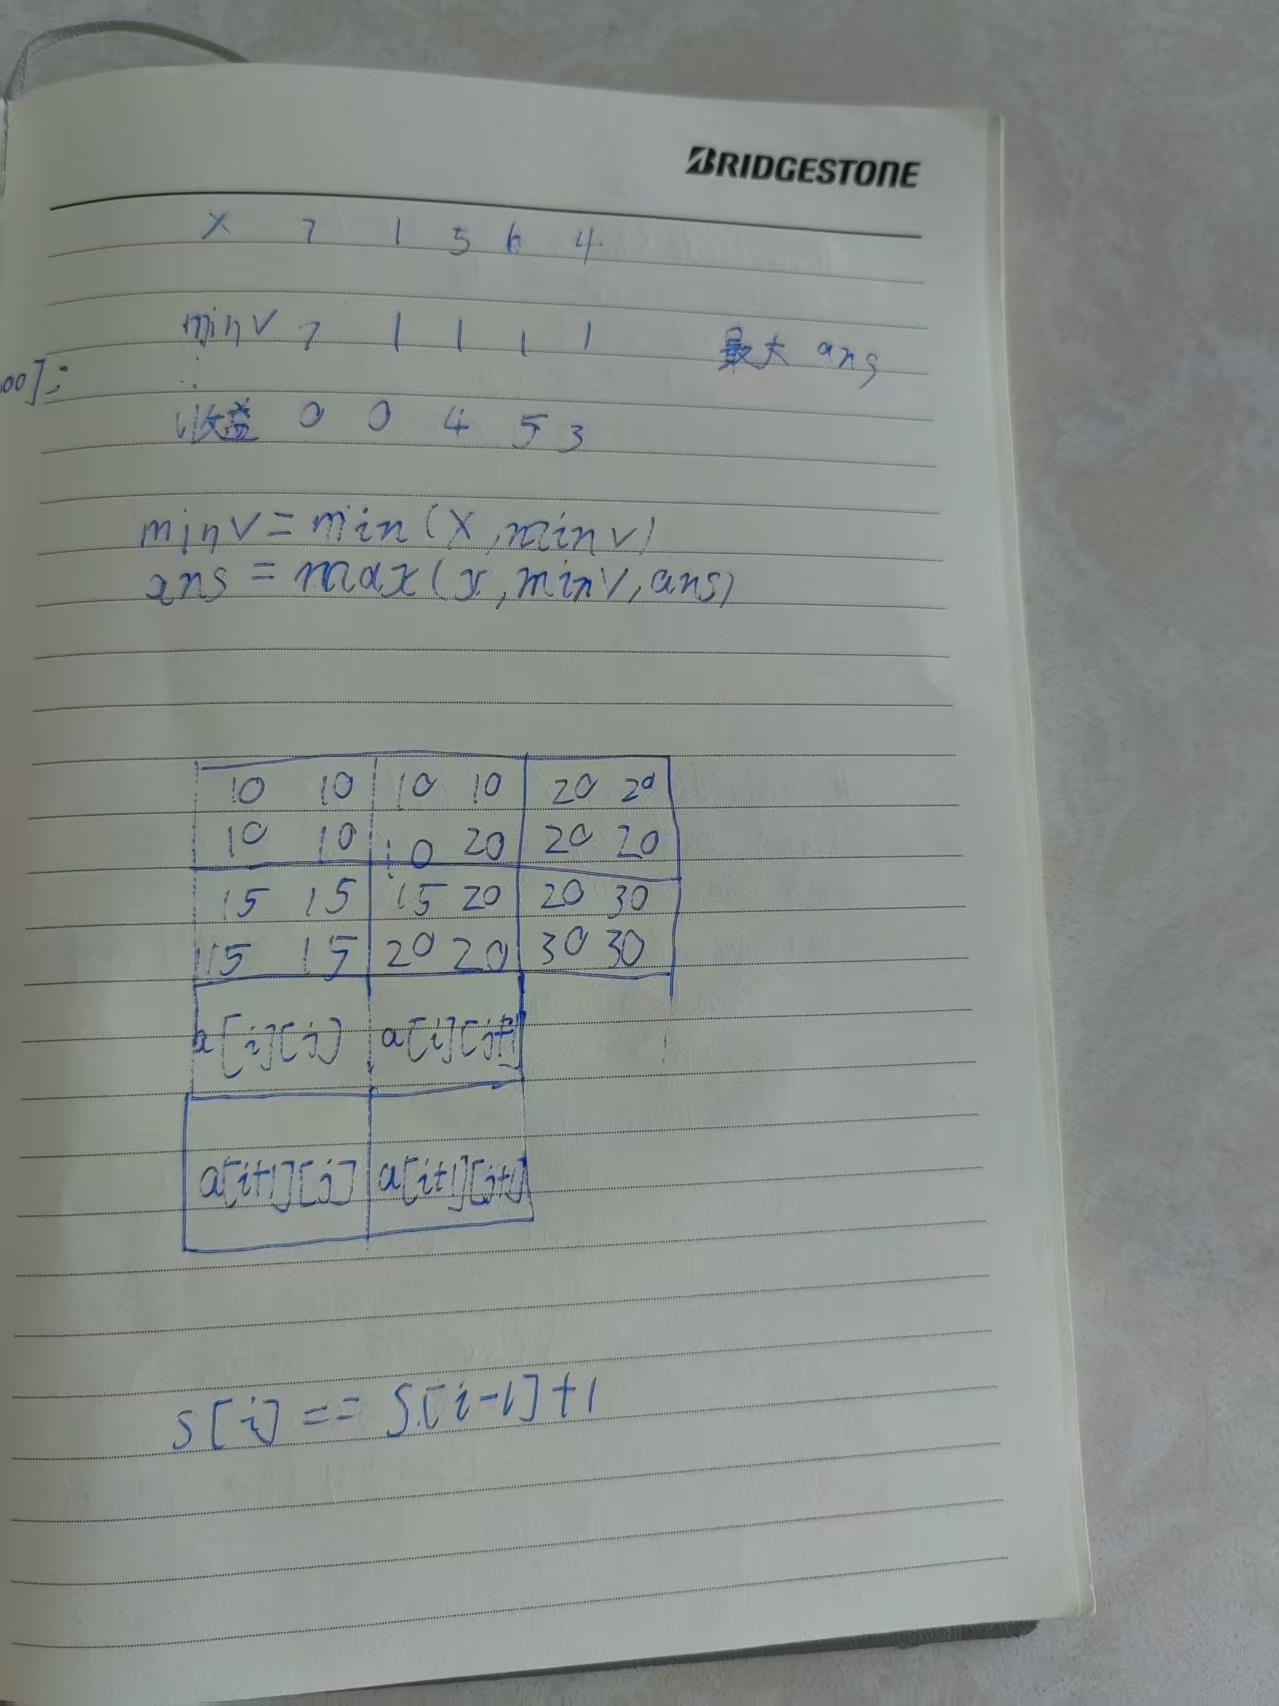 BRIDGESTONE
x 7 1 5 6 4
minv 7 1 1 1 1 最大 ans
00];
收益 0 0 4 5 3
minv = min(x, minv)
ans = max(x, minv, ans)
10 10 10 10 20 20
10 10 10 20 20 20
15 15 15 20 20 30
15 15 20 20 30 30
a[i][j] a[i][j+1]
a[i+1][j] a[i+1][j+1]
s[i] == s[i-1]+1